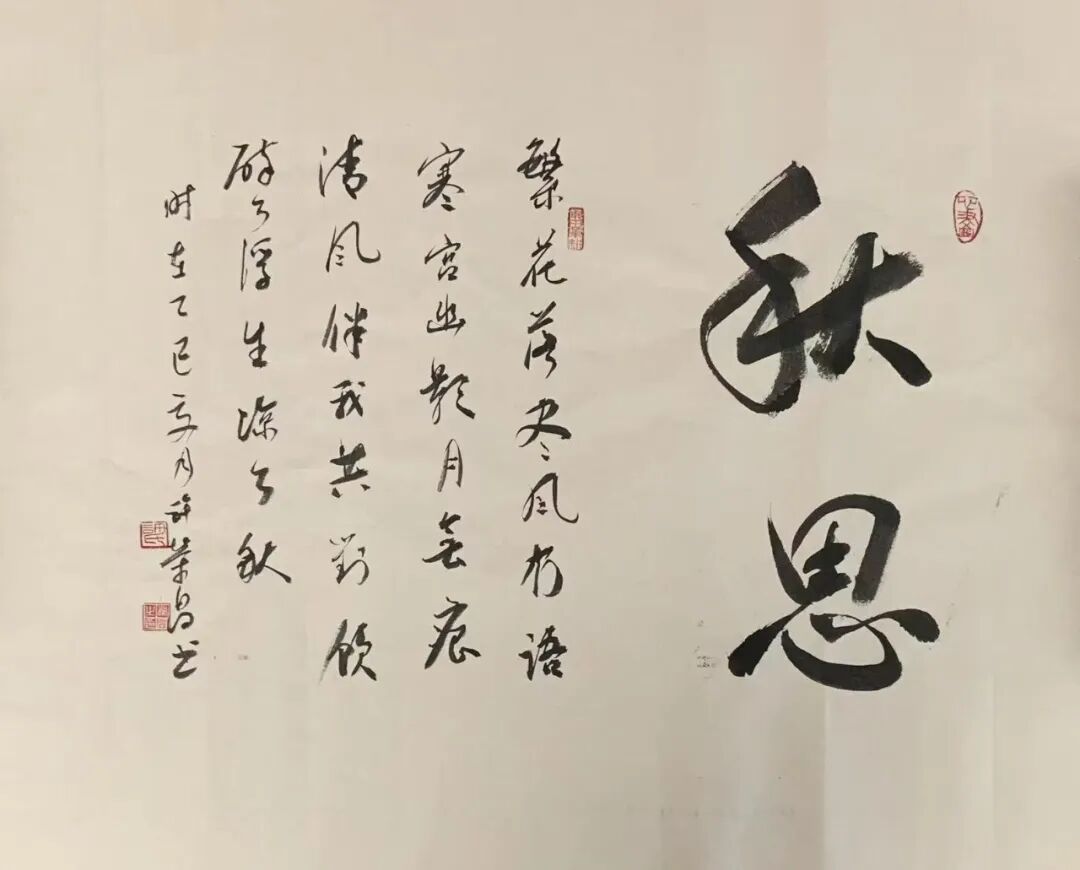 秋思
繁花落尽风语
寒宫幽影月無痕
清风伴我共對飲
醉了浮生凉了秋
时在乙巳夏月许荣昌书